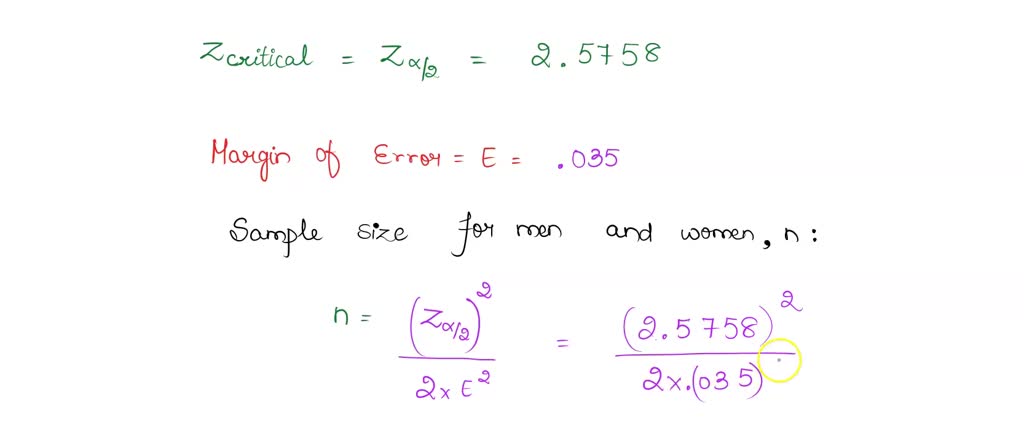 Zcritical = Zα/2 = 2.5758
Margin of Error = E = .035
Sample size for men and women, n:
n = (Zα/2)² / 2 x E² = (2.5758)² / 2x.(035)